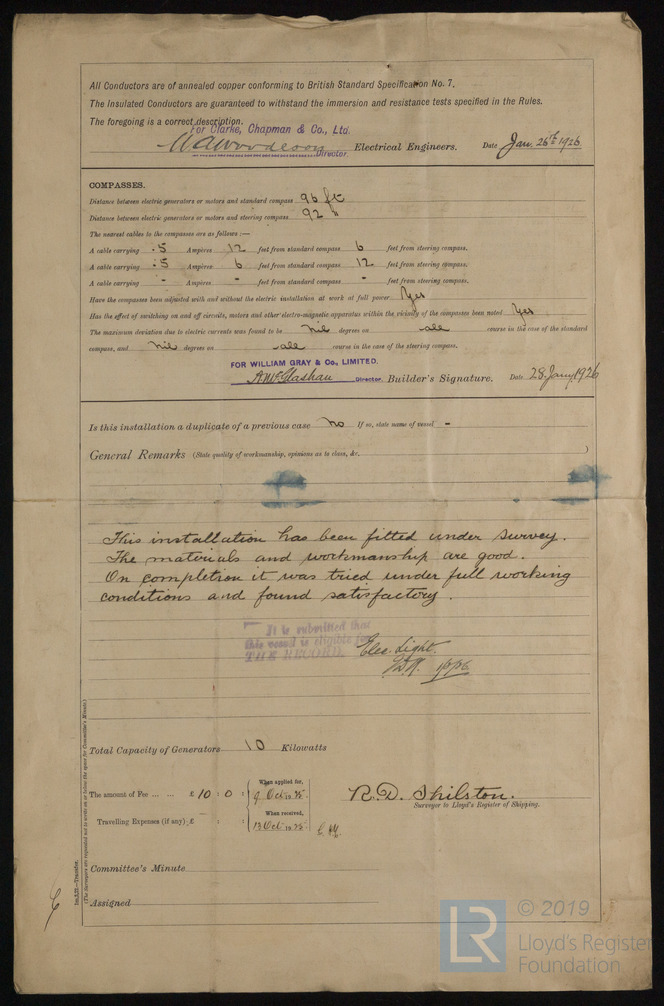 All Conductors are of annealed copper conforming to British Standard Specification No. 7,
The Insulated Conductors are guaranteed to withstand the immersion and resistance tests specified in the Rules.
The foregoing is a correct description.
For Clarke, Chapman & Co., Ltd.
Director. Electrical Engineers. Date Jan. 26th 1926
COMPASSES.
Distance between electric generators or motors and standard compass 96 ft
Distance between electric generators or motors and steering compass 92 "
The nearest cables to the compasses are as follows :—
A cable carrying .5 Amperes 12 feet from standard compass 6 feet from steering compass.
A cable carrying .5 Amperes 6 feet from standard compass 12 feet from steering compass.
A cable carrying - Amperes - feet from standard compass - feet from steering compass.
Have the compasses been adjusted with and without the electric installation at work at full power Yes
Has the effect of switching on and off circuits, motors and other electro-magnetic apparatus within the vicinity of the compasses been noted Yes
The maximum deviation due to electric currents was found to be Nil degrees on all course in the case of the standard
compass, and Nil degrees on all course in the case of the steering compass.
FOR WILLIAM GRAY & Co., LIMITED.
A. McGlashan Director. Builder's Signature. Date 28 Jany. 1926
Is this installation a duplicate of a previous case No If so, state name of vessel -
General Remarks (State quality of workmanship, opinions as to class, &c. )
This installation has been fitted under survey.
The materials and workmanship are good.
On completion it was tried under full working
conditions and found satisfactory.
It is submitted that
this vessel is eligible for
THE RECORD. Elec Light.
Total Capacity of Generators 10 Kilowatts
The amount of Fee ... ... £ 10 : 0 : When applied for, 9 Oct 1925
Travelling Expenses (if any) £ : : When received, 13 Oct 1925
R. D. Shilston.
Surveyor to Lloyd's Register of Shipping.
Committee's Minute
Assigned
(The Surveyors are requested not to write on or below the space for Committee's Minute.)
© 2019
LR
Lloyd's Register
Foundation